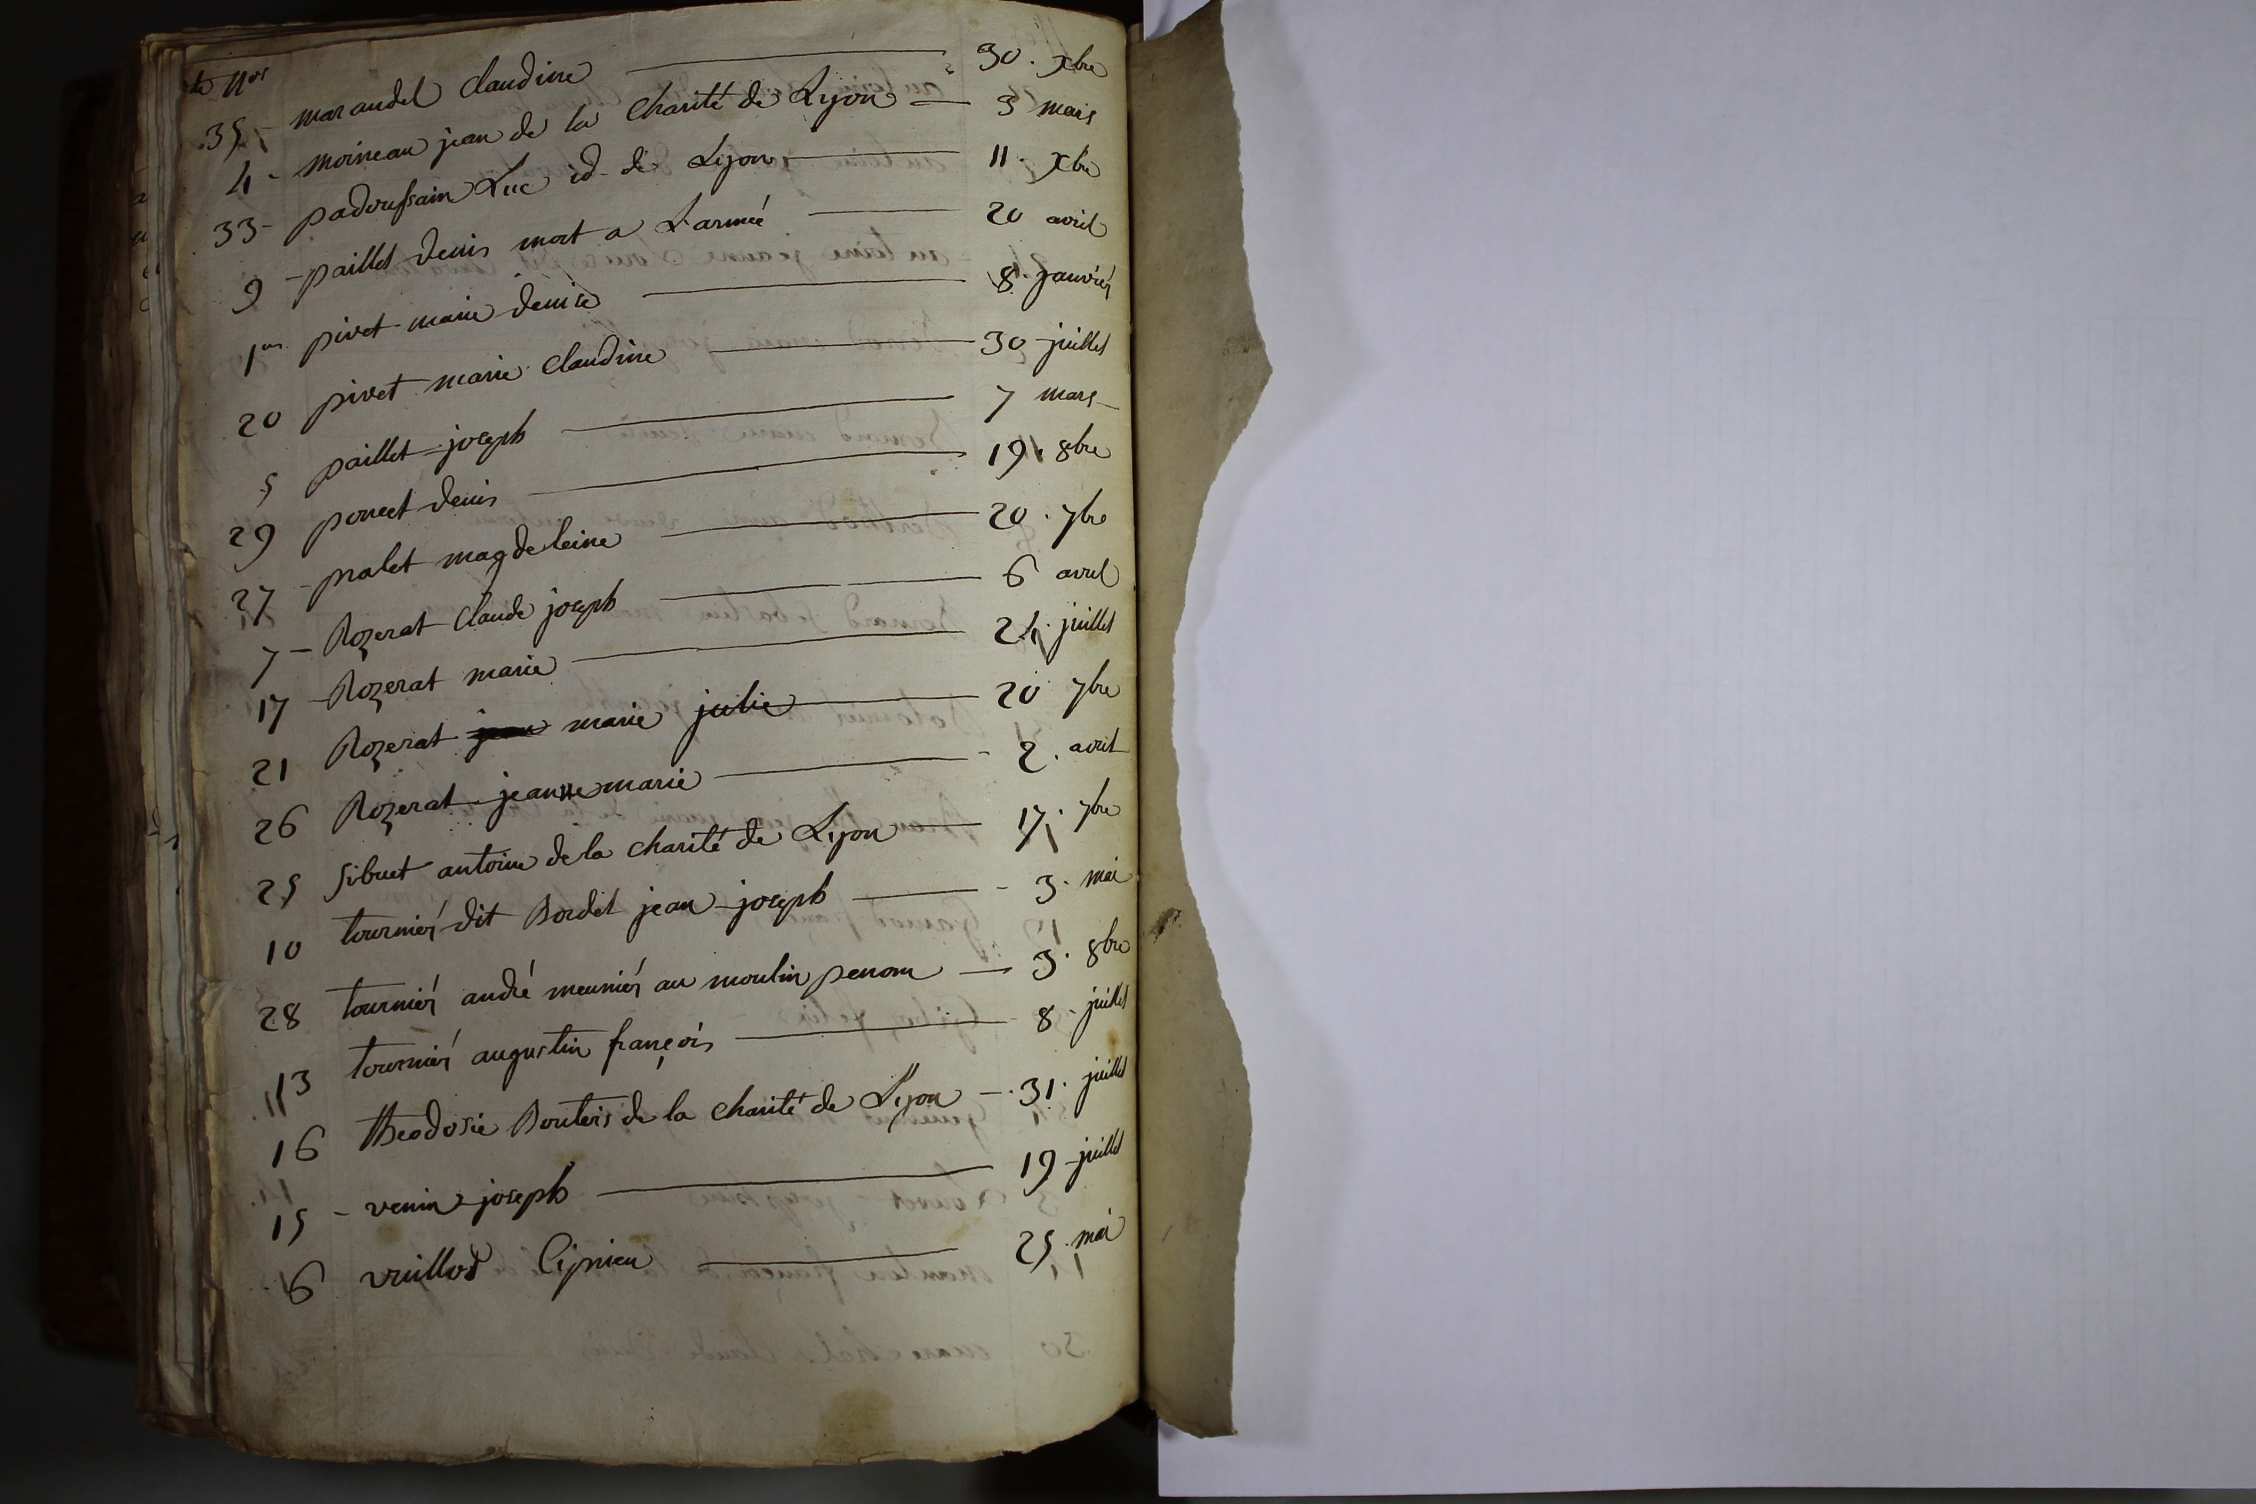 nos
35 - marandet Claudine 30. xbre
4 - moineau jean de la Charité de Lyon 3 mars
33 - padoussain Luc id. de Lyon 11. xbre
9 - paillet denis mort a L'armée 20 avril
1er pivet marie denise 8. janvier
20 pivet marie Claudine 30 juillet
5 paillet joseph 7 mars
29 poncet denis 19. 8bre
27 - pralet magdeleine 20. 7bre
7 - Rozerat Claude joseph 6 avril
17 - Rozerat marie 24. juillet
21 Rozerat jean marie julie 20 7bre
26 Rozerat jeanne marie 2. avril
25 Sibuet antoine de la charité de Lyon 17. 7bre
10 tournier dit Bordet jean joseph 3. mai
28 tournier andré meunier au moulin penom 3. 8bre
13 tournier augustin françois 8. juillet
16 theodosie Bouteis de la charité de Lyon 31. juillet
15 - venin joseph 19 juillet
6 vuillod Ciprien 25. mai